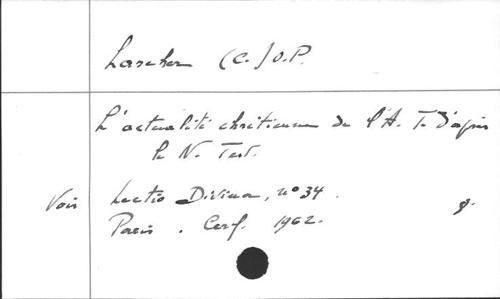 Larcher (C.) O.P.
L'actualité chrétienne de l'A. T. d'après
le N. Test.
Voir Lectio Divina, nº 34.
Paris. Cerf. 1962. 8.